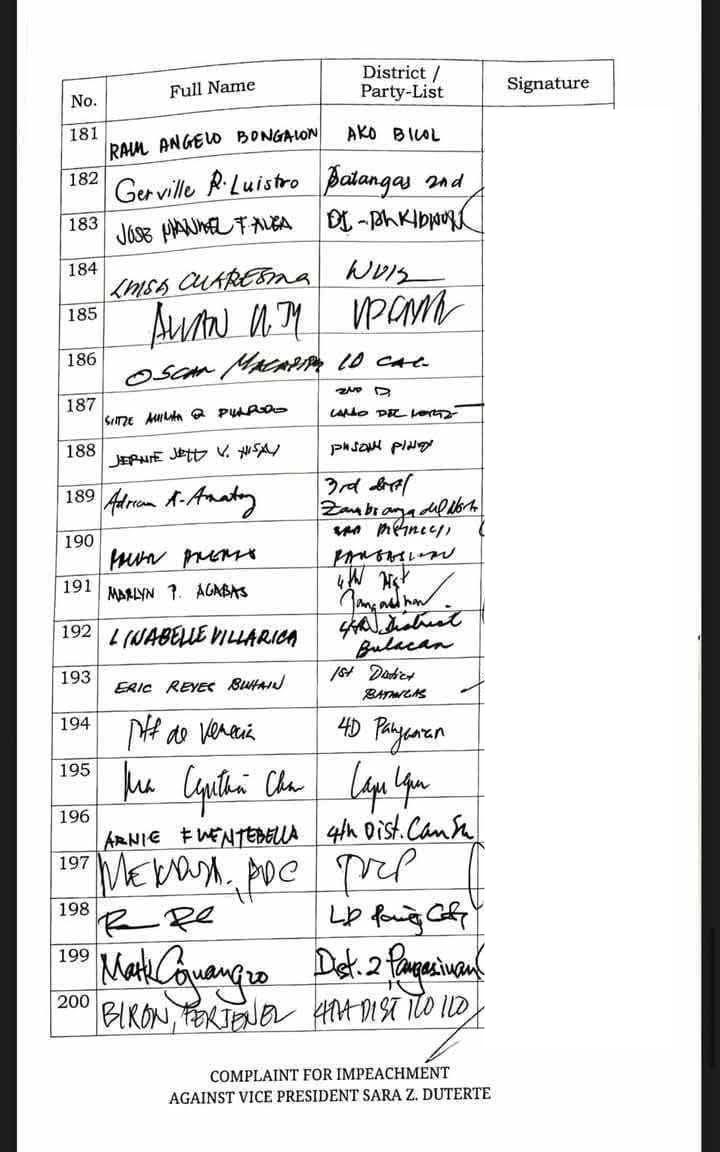 No. Full Name District / Party-List Signature
181 RAUL ANGELO BONGALON AKO BICOL
182 Gerville R. Luistro Batangas 2nd
183 JOSE MANUEL F ALBA D1 - BUKIDNON
184 LUISA CUARESMA
185
186 OSCAR
187 2ND D
LANAO DEL NORTE
188 JERNIE JETT V. NISAY PUSONG PINOY
189 Adrian A. Amatong 3rd dist/
Zamboanga del Norte
190
PANGASINAN
191 MARLYN P. AGABAS 6th Dist
Pangasinan
192 LINABELLE VILLARICA 4th District
Bulacan
193 ERIC REYES BUHAIN 1st District
BATANGAS
194 de Venecia 4D Pangasinan
195 Ma Cynthia Chan Lapu Lapu
196 ARNIE FUENTEBELLA 4th Dist. Cam Sur
197
198 Pasig City
199 Mark Cojuangco Dist. 2 Pangasinan
200 BIRON, FERJENEL 4TH DIST ILOILO
COMPLAINT FOR IMPEACHMENT
AGAINST VICE PRESIDENT SARA Z. DUTERTE